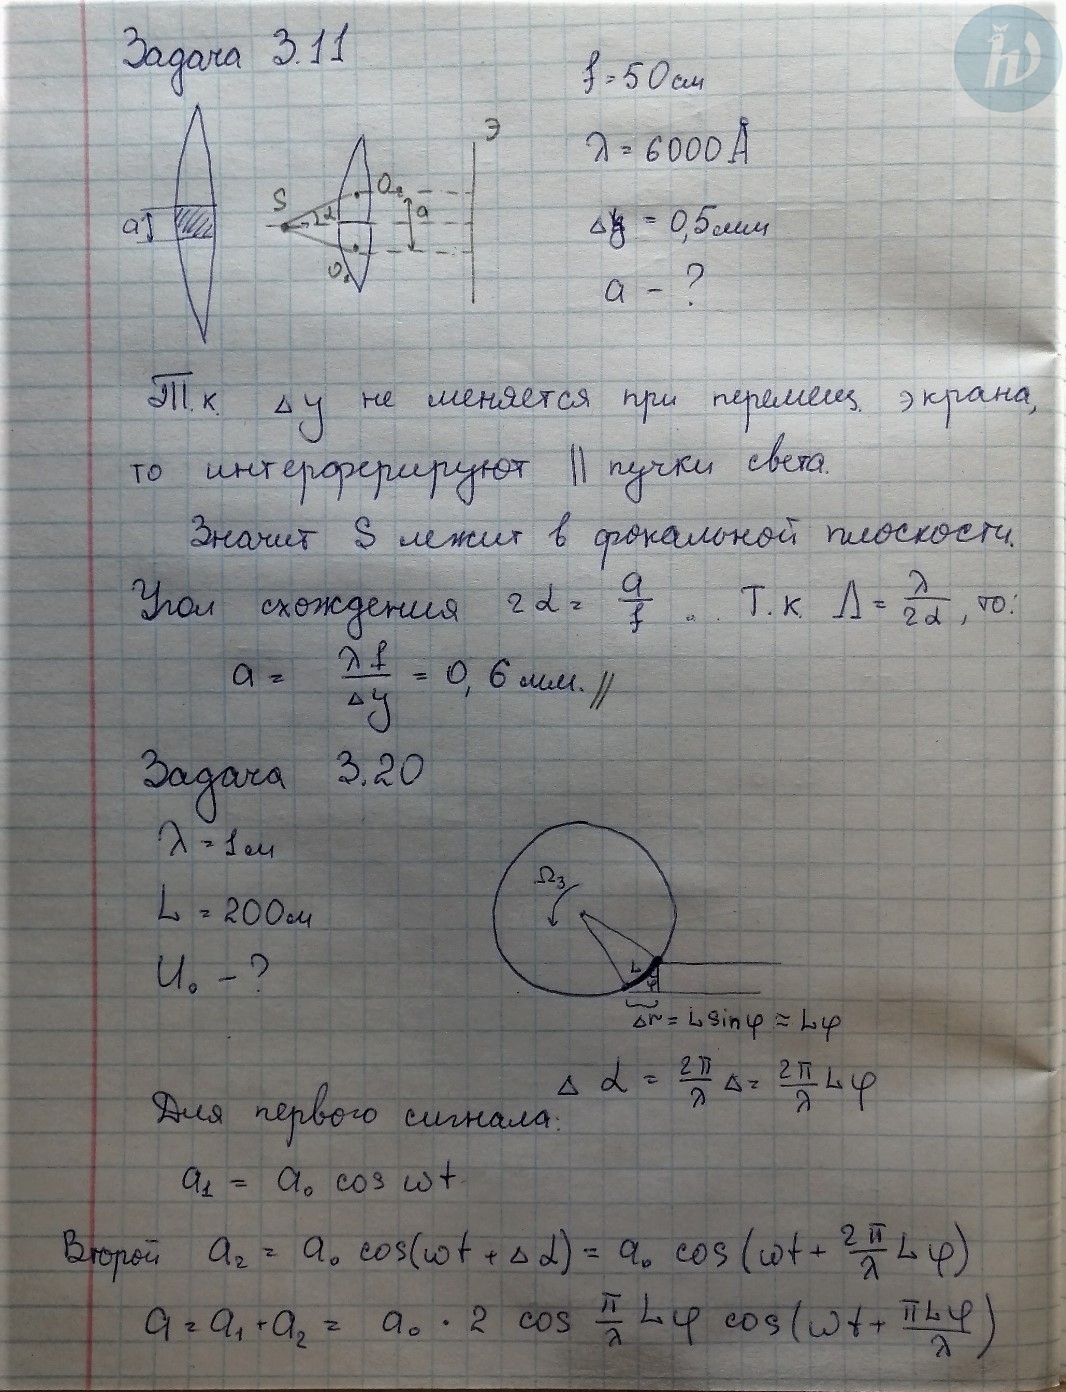 Задача 3.11
f = 50 см
λ = 6000 Å
Δy = 0,5 мм
a - ?
a
S
α
O₂
O₁
a
Э
Т.к. Δy не меняется при перемещ. экрана,
то интерферируют || пучки света.
Значит S лежит в фокальной плоскости.
Угол схождения 2α = a/f . Т.к. Λ = λ/2α, то:
a = λf/Δy = 0,6 мм. //
Задача 3.20
λ = 1 м
L = 200 м
U₀ - ?
Ω₃
L
φ
Δr = L sin φ ≈ Lφ
Δα = 2π/λ Δ = 2π/λ Lφ
Для первого сигнала:
a₁ = a₀ cos ωt
Второй a₂ = a₀ cos(ωt + Δα) = a₀ cos (ωt + 2π/λ Lφ)
a = a₁ + a₂ = a₀ · 2 cos π/λ Lφ cos(ωt + πLφ/λ)